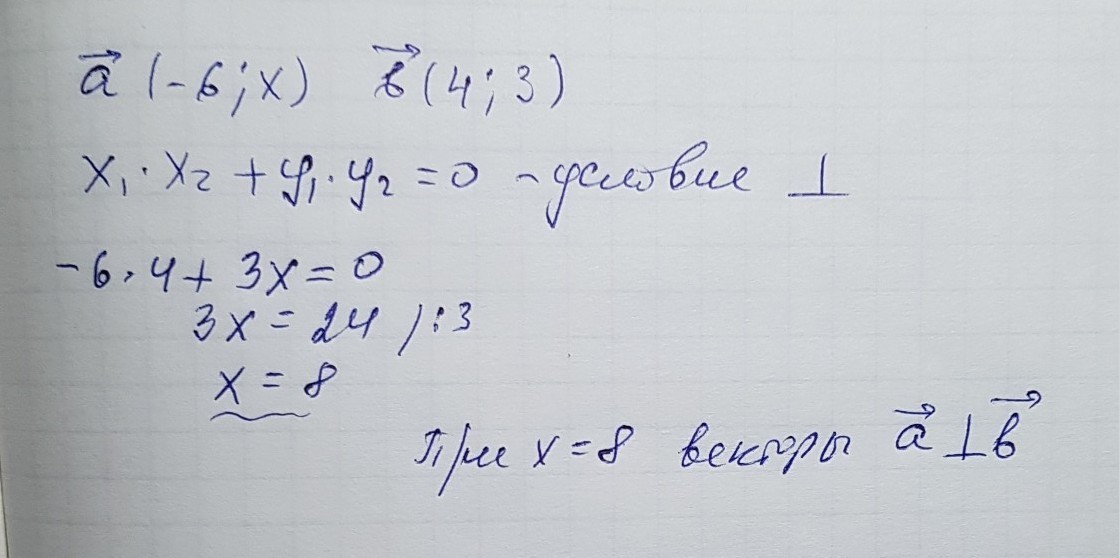 a⃗ (-6; x) b⃗ (4; 3)
x₁·x₂ + y₁·y₂ = 0 - условие ⊥
-6·4 + 3x = 0
3x = 24 /:3
x = 8
При x = 8 векторы a⃗ ⊥ b⃗